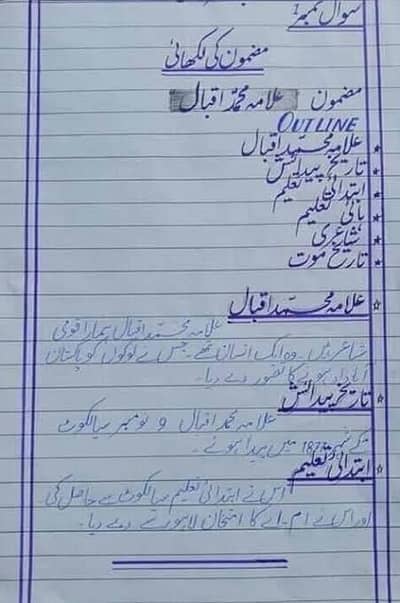 سوال نمبر 2
مضمون کی لکھائی
مضمون علامہ محمد اقبال
OUTLINE
* علامہ محمد اقبال
* تاریخ پیدائش
* ابتدائی تعلیم
* باقی تعلیم
* شاعری
* تاریخ موت
* علامہ محمد اقبال
علامہ محمد اقبال ہمارا قومی
شاعر ہیں۔ وہ ایک انسان تھے۔ جس نے لوگوں کو پاکستان
آباد ہونے کا تصور دے دیا۔
* تاریخ پیدائش
علامہ محمد اقبال 9 نومبر سیالکوٹ
کے میں پیدا ہوئے۔
* ابتدائی تعلیم
اس نے ابتدائی تعلیم سیالکوٹ سے حاصل کی
اور اس نے ام۔اے کا امتحان لاہور دے دیا۔